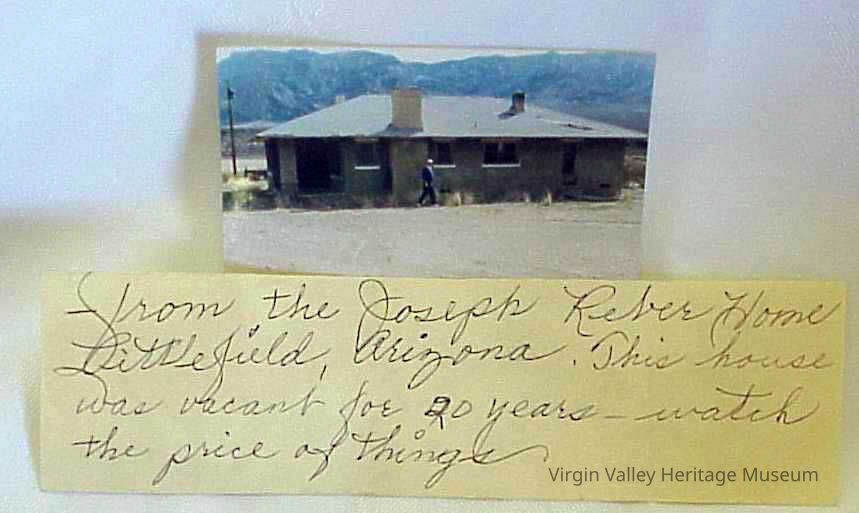 From the Joseph Reber Home
Littlefield, Arizona. This house
was vacant for 20 years - watch
the price of things
Virgin Valley Heritage Museum